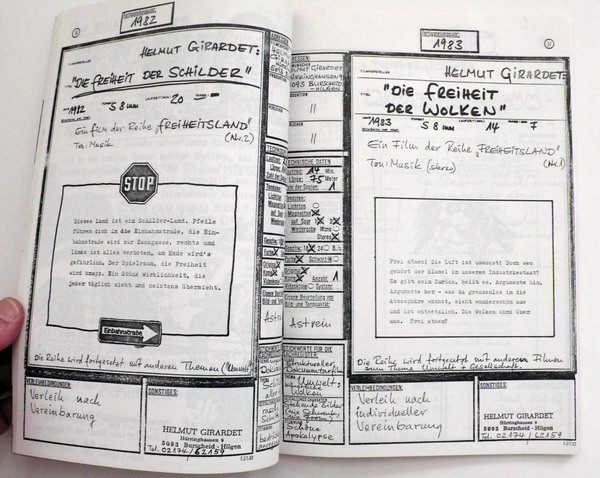 1982
HELMUT GIRARDET:
"DIE FREIHEIT DER SCHILDER"
1982 S 8 mm 20
Ein Film der Reihe „FREIHEITSLAND"
(Nr. 2)
Ton: Musik
STOP
Dieses Land ist ein Schilder-Land. Pfeile
führen dich in die Einbahnstraße, die Ein-
bahnstraße wird zur Sackgasse, rechts und
links ist alles verboten, am Ende wird's
gefährlich. Der Spielraum, die Freiheit
wird knapp. Ein Stück Wirklichkeit, die
jeder täglich sieht und meistens übersieht.
Einbahnstraße
Die Reihe wird fortgesetzt mit anderen Themen (Umwelt)
VERLEIHBEDINGUNGEN:
Verleih nach
Vereinbarung
SONSTIGES:
HELMUT GIRARDET
Hürringhausen 9
5093 Burscheid - Hilgen
Tel. 02174/62159
HELMUT GIRARDET
HÜRRINGHAUSEN 9
5093 BURSCHEID
-HILGEN
"
"
TECHNISCHE DATEN
Laufzeit: 14 Min.
Länge: 75 Meter
Zahl der Spulen: 1
Tendoten:
Lichtton
Magnetton X
auf Spur 1X 2X
Wiedergabe Mono
Stereo X
Farbe X Schwarz-W
Original X
Kopie X Anzahl 1
Videokopie System:
Eigene Beurteilung von
Bild- und Tonqualität:
Astrein
Umwelt:
Wolken
Schöne
Apokalypse
1983
HELMUT GIRARDET:
"DIE FREIHEIT
DER WOLKEN"
1983 S 8 mm 14 F
Ein Film der Reihe „FREIHEITSLAND"
(Nr. 1)
Ton: Musik (stereo)
Frei atmen! Die Luft ist umsonst! Doch wem
gehört der Himmel in unserem Industriestaat?
Es gibt kein Zurück, heißt es. Argumente hin,
Argumente her - was da grenzenlos in die
Atmosphäre wächst, sieht wunderschön aus
und ist entsetzlich. Die Wolken sind über
uns. Frei atmen?
Die Reihe wird fortgesetzt mit anderen Filmen
zum Thema Umwelt & Gesellschaft.
VERLEIHBEDINGUNGEN:
Verleih nach
individueller
Vereinbarung
SONSTIGES:
HELMUT GIRARDET
Hürringhausen 9
5093 Burscheid - Hilgen
Tel. 02174 / 62159